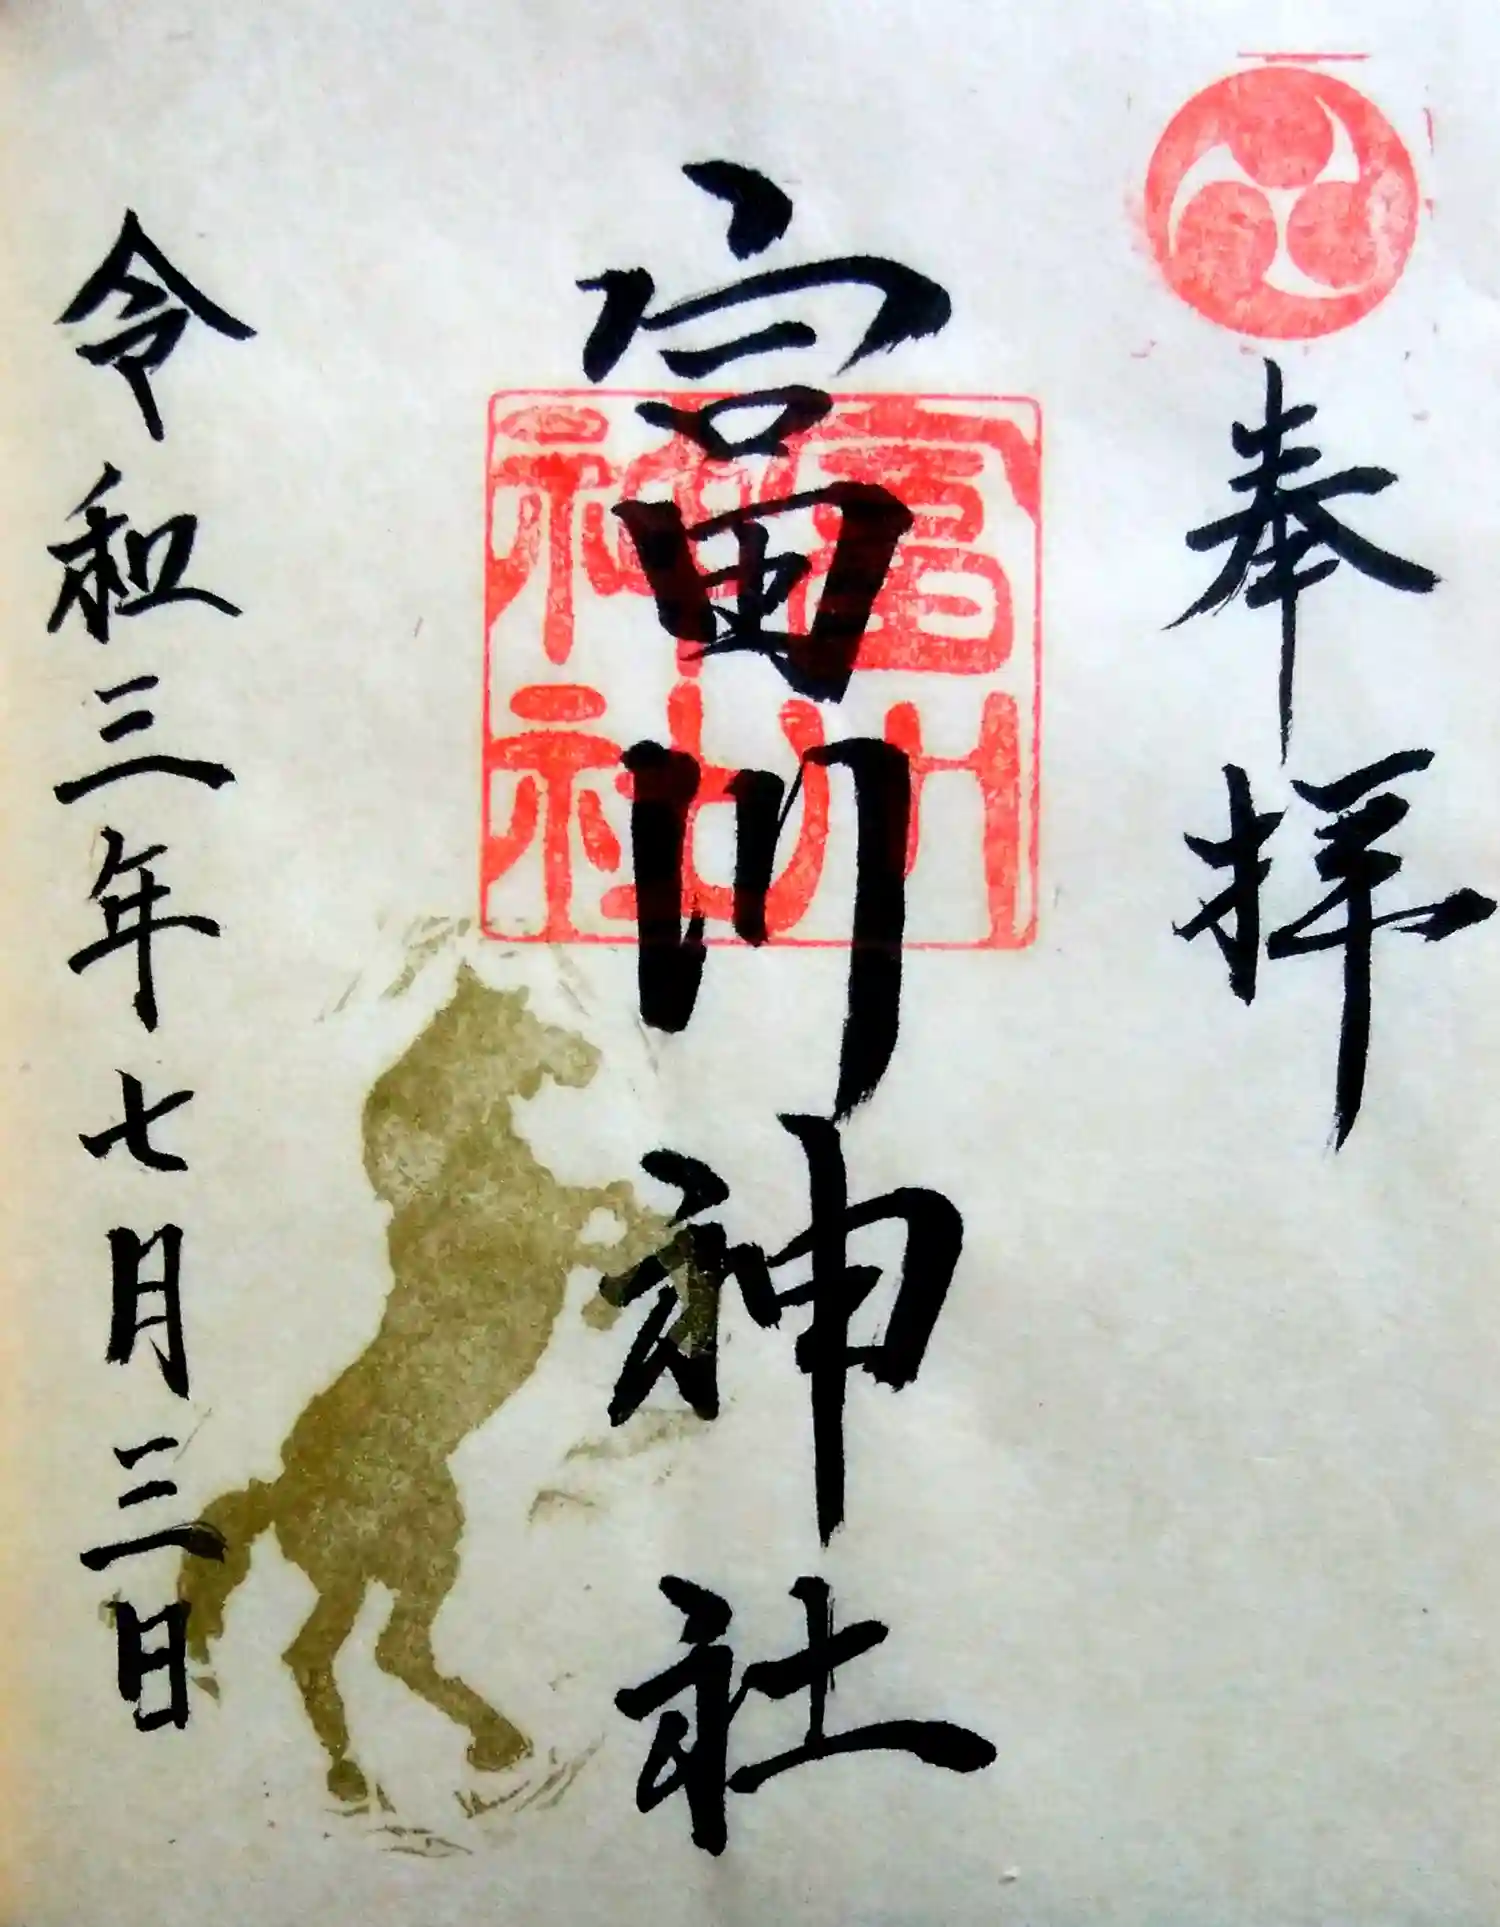 奉拝
富川神社
富川神社
令和三年七月三日